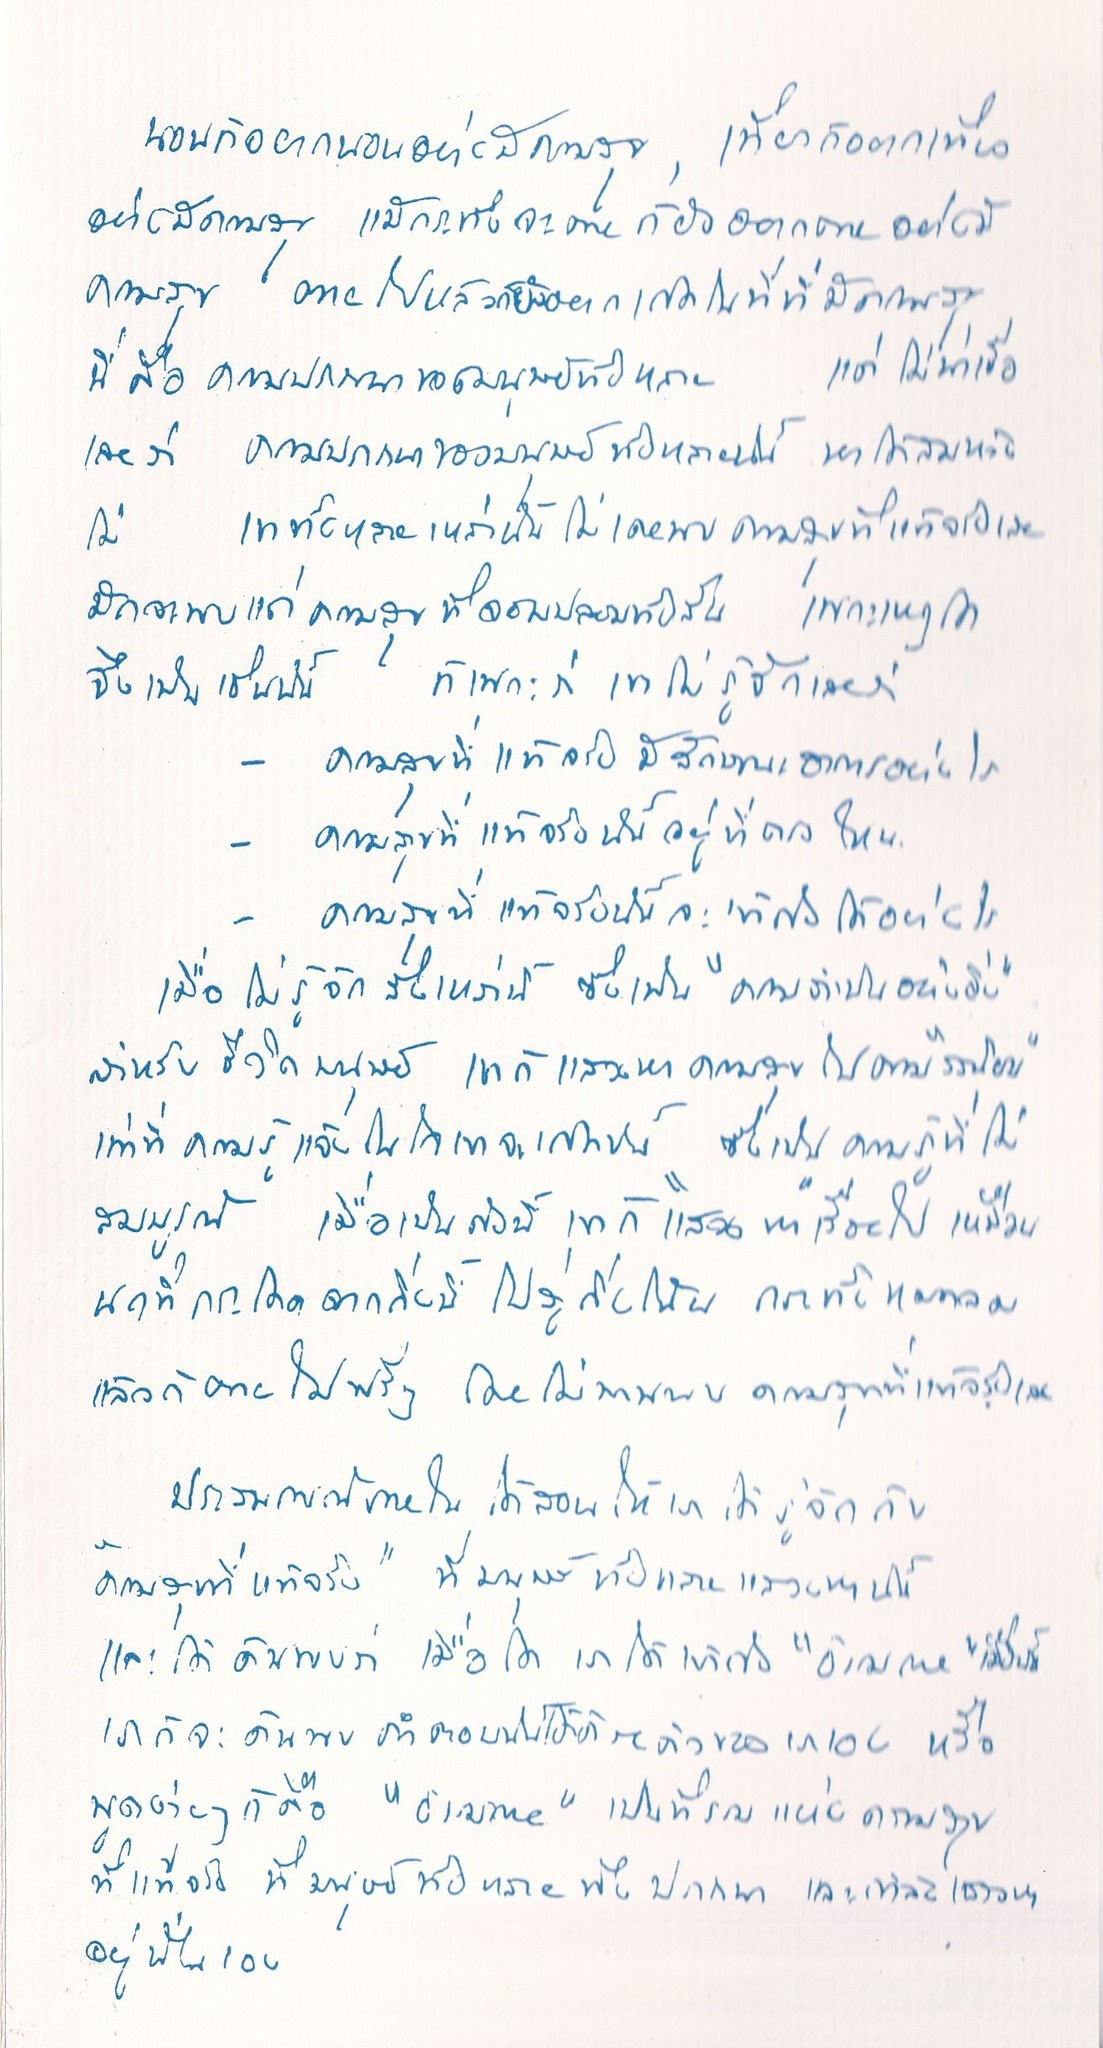 นอนก็อยากนอนอย่างมีความสุข , เที่ยวก็อยากเที่ยว
อย่างมีความสุข แม้กระทั่งจะตาย ก็ยังอยากตายอย่างมี
ความสุข ตายไปแล้วก็ยังอยากเกิดในที่ที่มีความสุข
นี่คือ ความปรารถนาของมนุษย์ทั้งหลาย แต่ ไม่น่าเชื่อ
เลยว่า ความปรารถนาของมนุษย์ทั้งหลายนั้น หาได้สมหวัง
ไม่ เขาทั้งหลายเหล่านั้น ไม่เคยพบ ความสุขที่แท้จริงเลย
มักจะพบแต่ความสุข ที่จอมปลอมทั้งสิ้น เพราะเหตุใด
จึงเป็นเช่นนั้น ก็เพราะว่า เขาไม่รู้จักเลยว่า
- ความสุขที่แท้จริง มีลักษณะอาการอย่างไร
- ความสุขที่แท้จริงนั้นอยู่ที่ตรงไหน.
- ความสุขที่แท้จริงนั้นจะเข้าถึงได้อย่างไร
เมื่อไม่รู้จัก สิ่งเหล่านี้ ซึ่งเป็น "ความจำเป็นอย่างยิ่ง"
สำหรับ ชีวิตมนุษย์ เขาก็แสวงหาความสุข ไปตาม
เท่าที่ความรู้แจ้งในใจเขาจะ ซึ่งเป็นความรู้ที่ไม่
สมบูรณ์ เมื่อเป็นดังนี้ เขาก็แสวงหาเรื่อยไป เหมือน
นกที่กระโดดจากกิ่งนี้ ไปสู่กิ่งโน้น กระทั่งหมดลม
แล้วก็ตายไปฟรีๆ โดยไม่พานพบ ความสุขที่แท้จริงเลย
ประสบการณ์ภายใน ได้สอนให้เราได้รู้จักกับ
"ความสุขที่แท้จริง" ที่มนุษย์ทั้งหลายแสวงหานั้น
และได้ค้นพบว่า เมื่อใด เราได้เข้าถึง "ธรรมกาย" เมื่อนั้น
เราก็จะค้นพบ คำตอบนั้นได้ด้วยตัวของเราเอง หรือ
พูดง่ายๆ ก็คือ "ธรรมกาย" เป็นที่รวมแห่งความสุข
ที่แท้จริง ที่มนุษย์ทั้งหลายพึงปรารถนา และกำลังแสวงหา
อยู่นั่นเอง